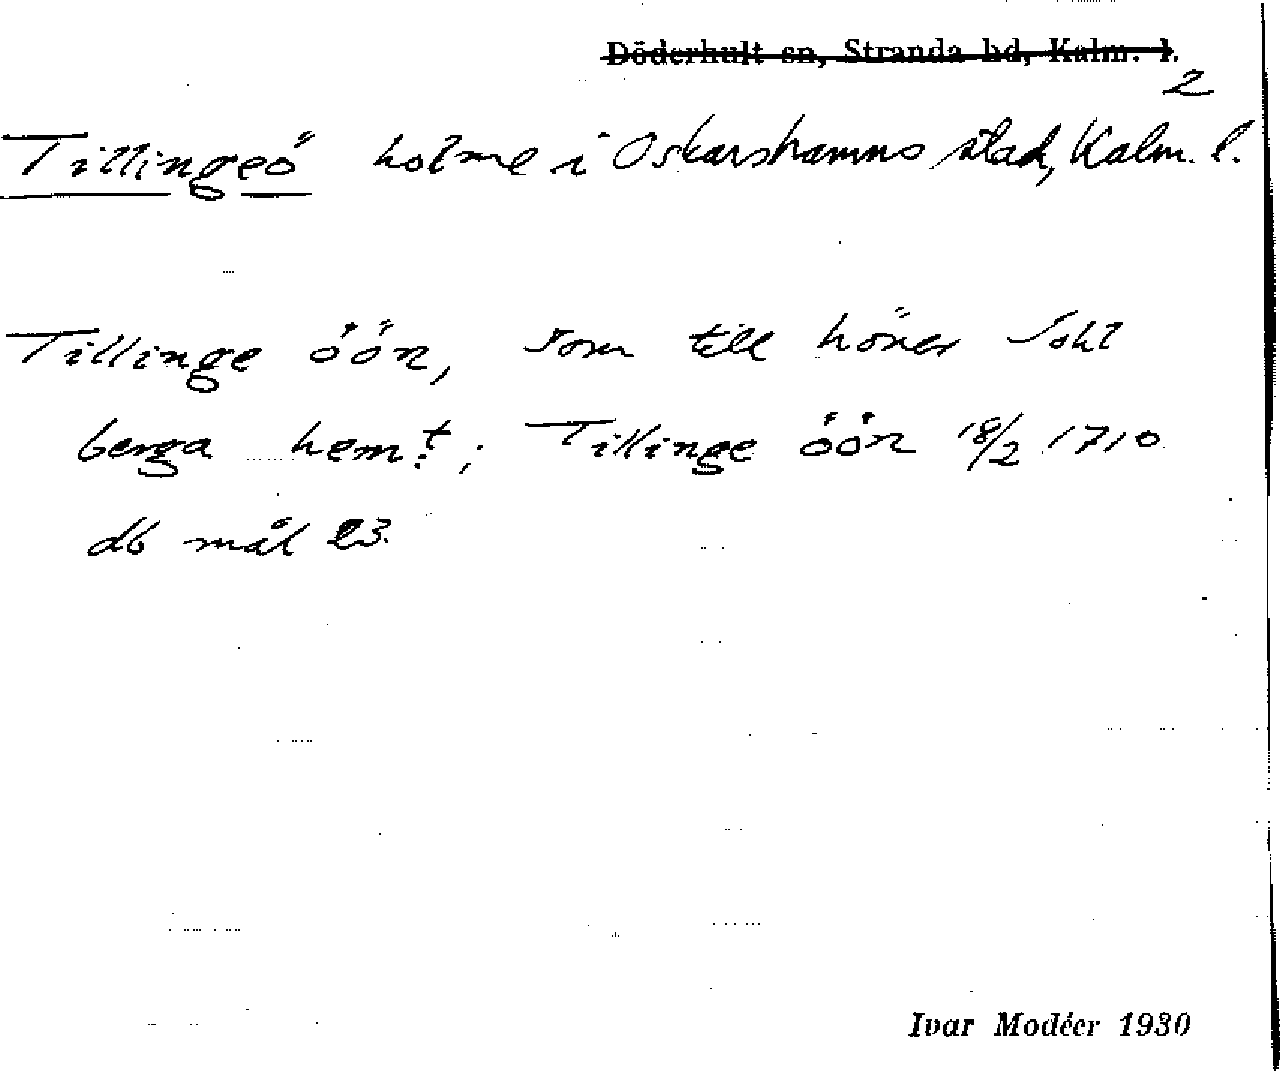 Döderhult sn, Stranda hd, Kalm. l.
2
Tillingeö holme i Oskarshamns stad, Kalm. l.
Tillinge öön, som till hörer Sohl
berga hem:t; Tillinge öön 18/2 1710
db mål 23.
Ivar Modéer 1930